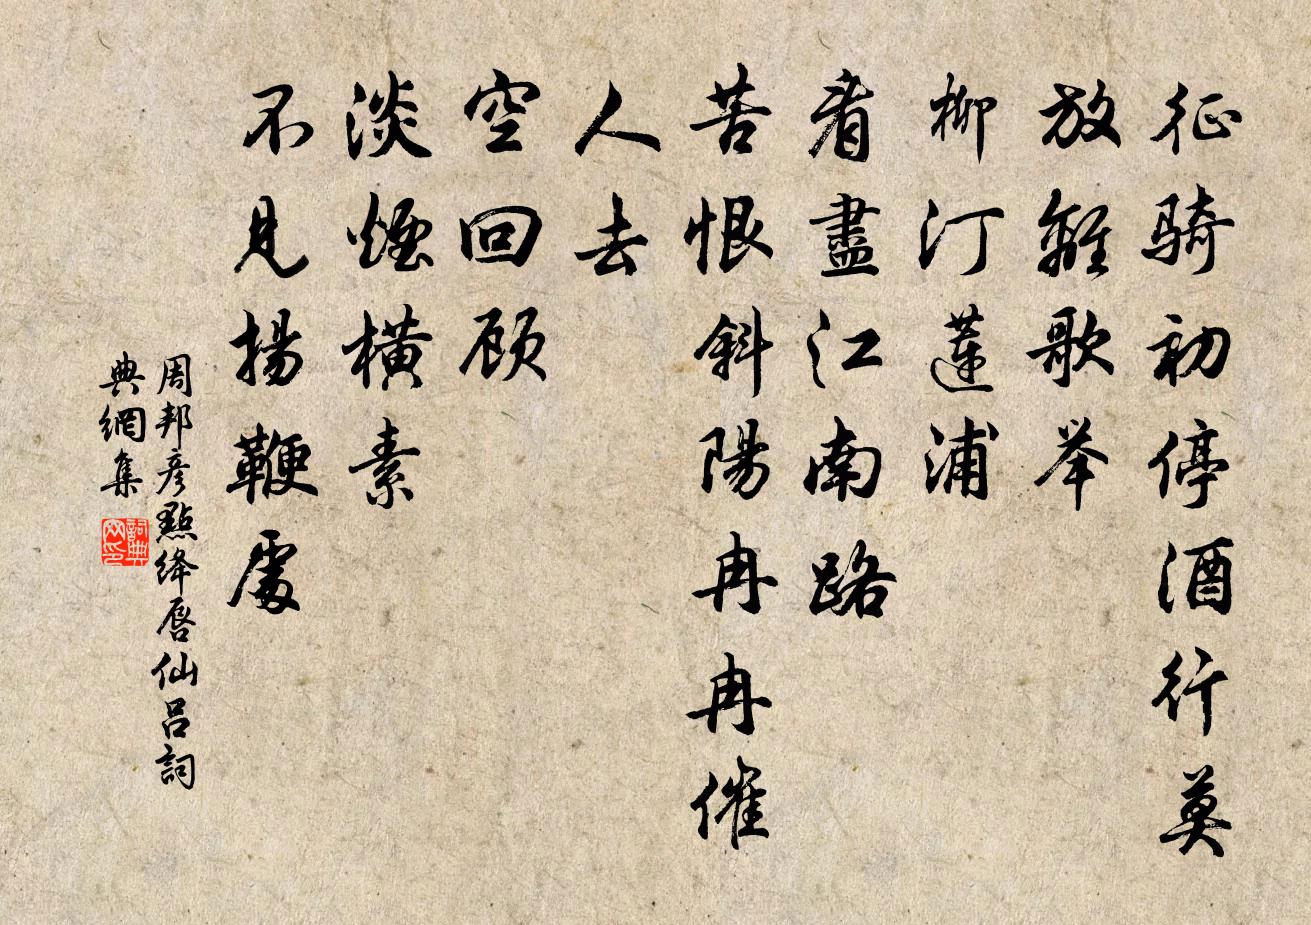 征骑初停酒行莫
放離歌举
柳汀蓮浦
看盡江南路
苦恨斜陽冉冉催
人去
空回顾
淡煙橫素
不見揚鞭處
周邦彦點绛唇仙吕詞
典網集
詞典
网印